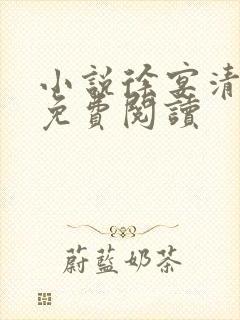 小說徐宴清
免費閱讀
蔚藍奶茶